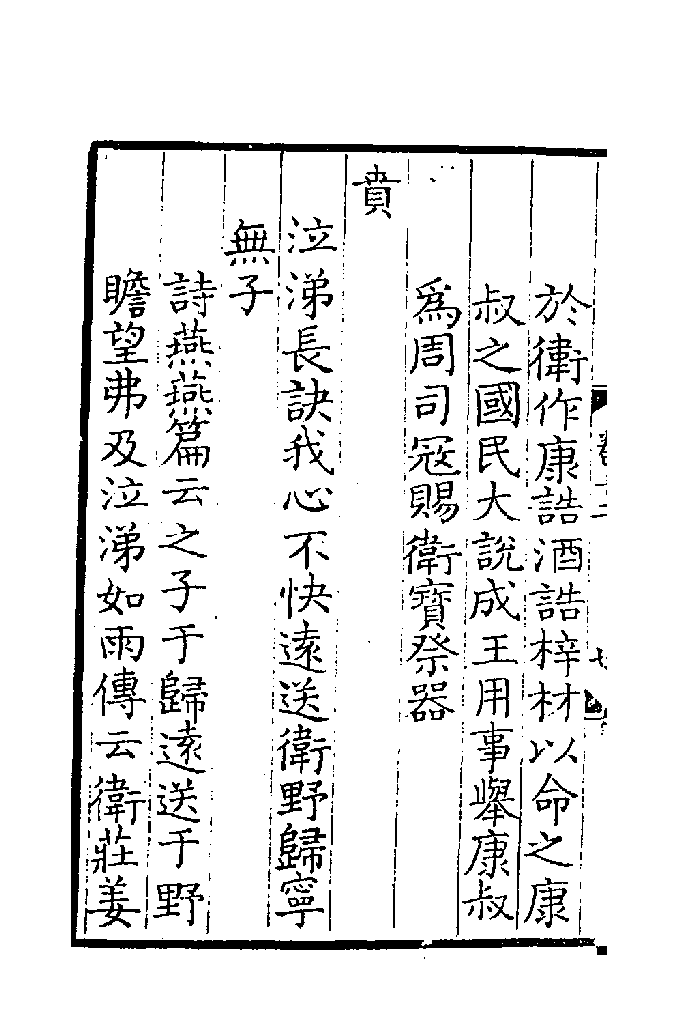 於衛作康誥酒誥梓材以命之康
叔之國民大說成王用事舉康叔
爲周司冦賜衛寶祭器
賁
泣涕長訣我心不快遠送衛野歸寧
無子
詩燕燕篇云之子于歸遠送于野
瞻望弗及泣涕如雨傳云衛莊姜